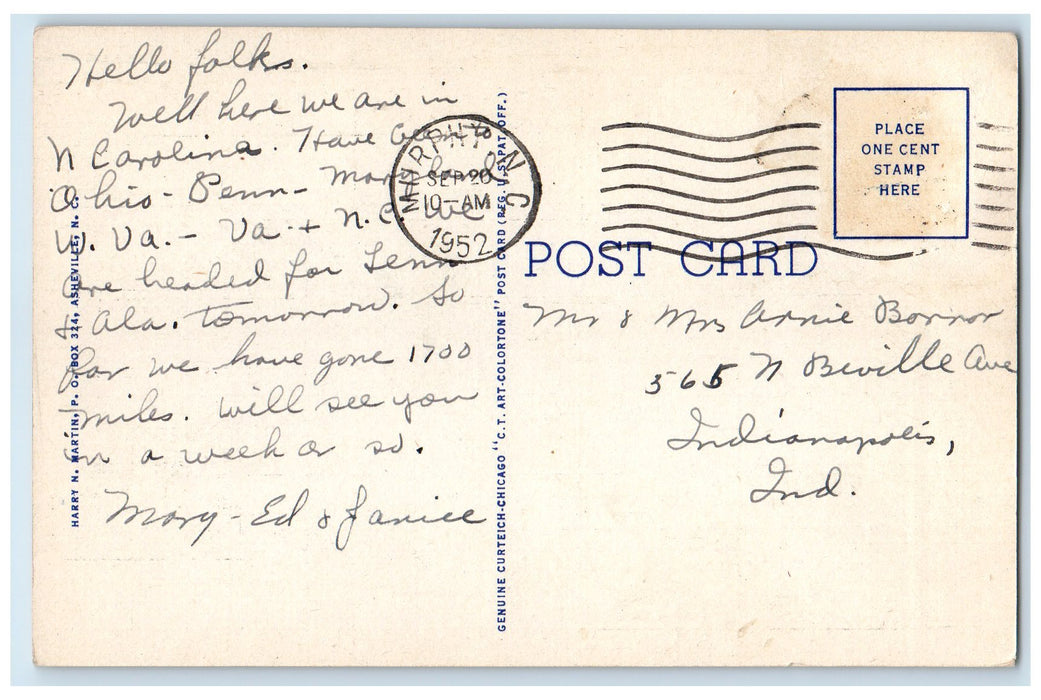 Hello folks.
Well here we are in
N Carolina. Have been to
Ohio - Penn - Maryland
W. Va. - Va. + N.C. We
are headed for Tenn
& Ala. tomorrow. So
far we have gone 1700
miles. Will see you
in a week or so.
Mary - Ed & Janice
HARRY N. MARTIN, P. O. BOX 324, ASHEVILLE, N. C.
GENUINE CURTEICH-CHICAGO "C.T. ART-COLORTONE" POST CARD (REG. U.S. PAT. OFF.)
MURPHY N C
SEP 20
10-AM
1952
PLACE
ONE CENT
STAMP
HERE
POST CARD
Mr & Mrs Arnie Bonnor
565 N Beville Ave
Indianapolis,
Ind.